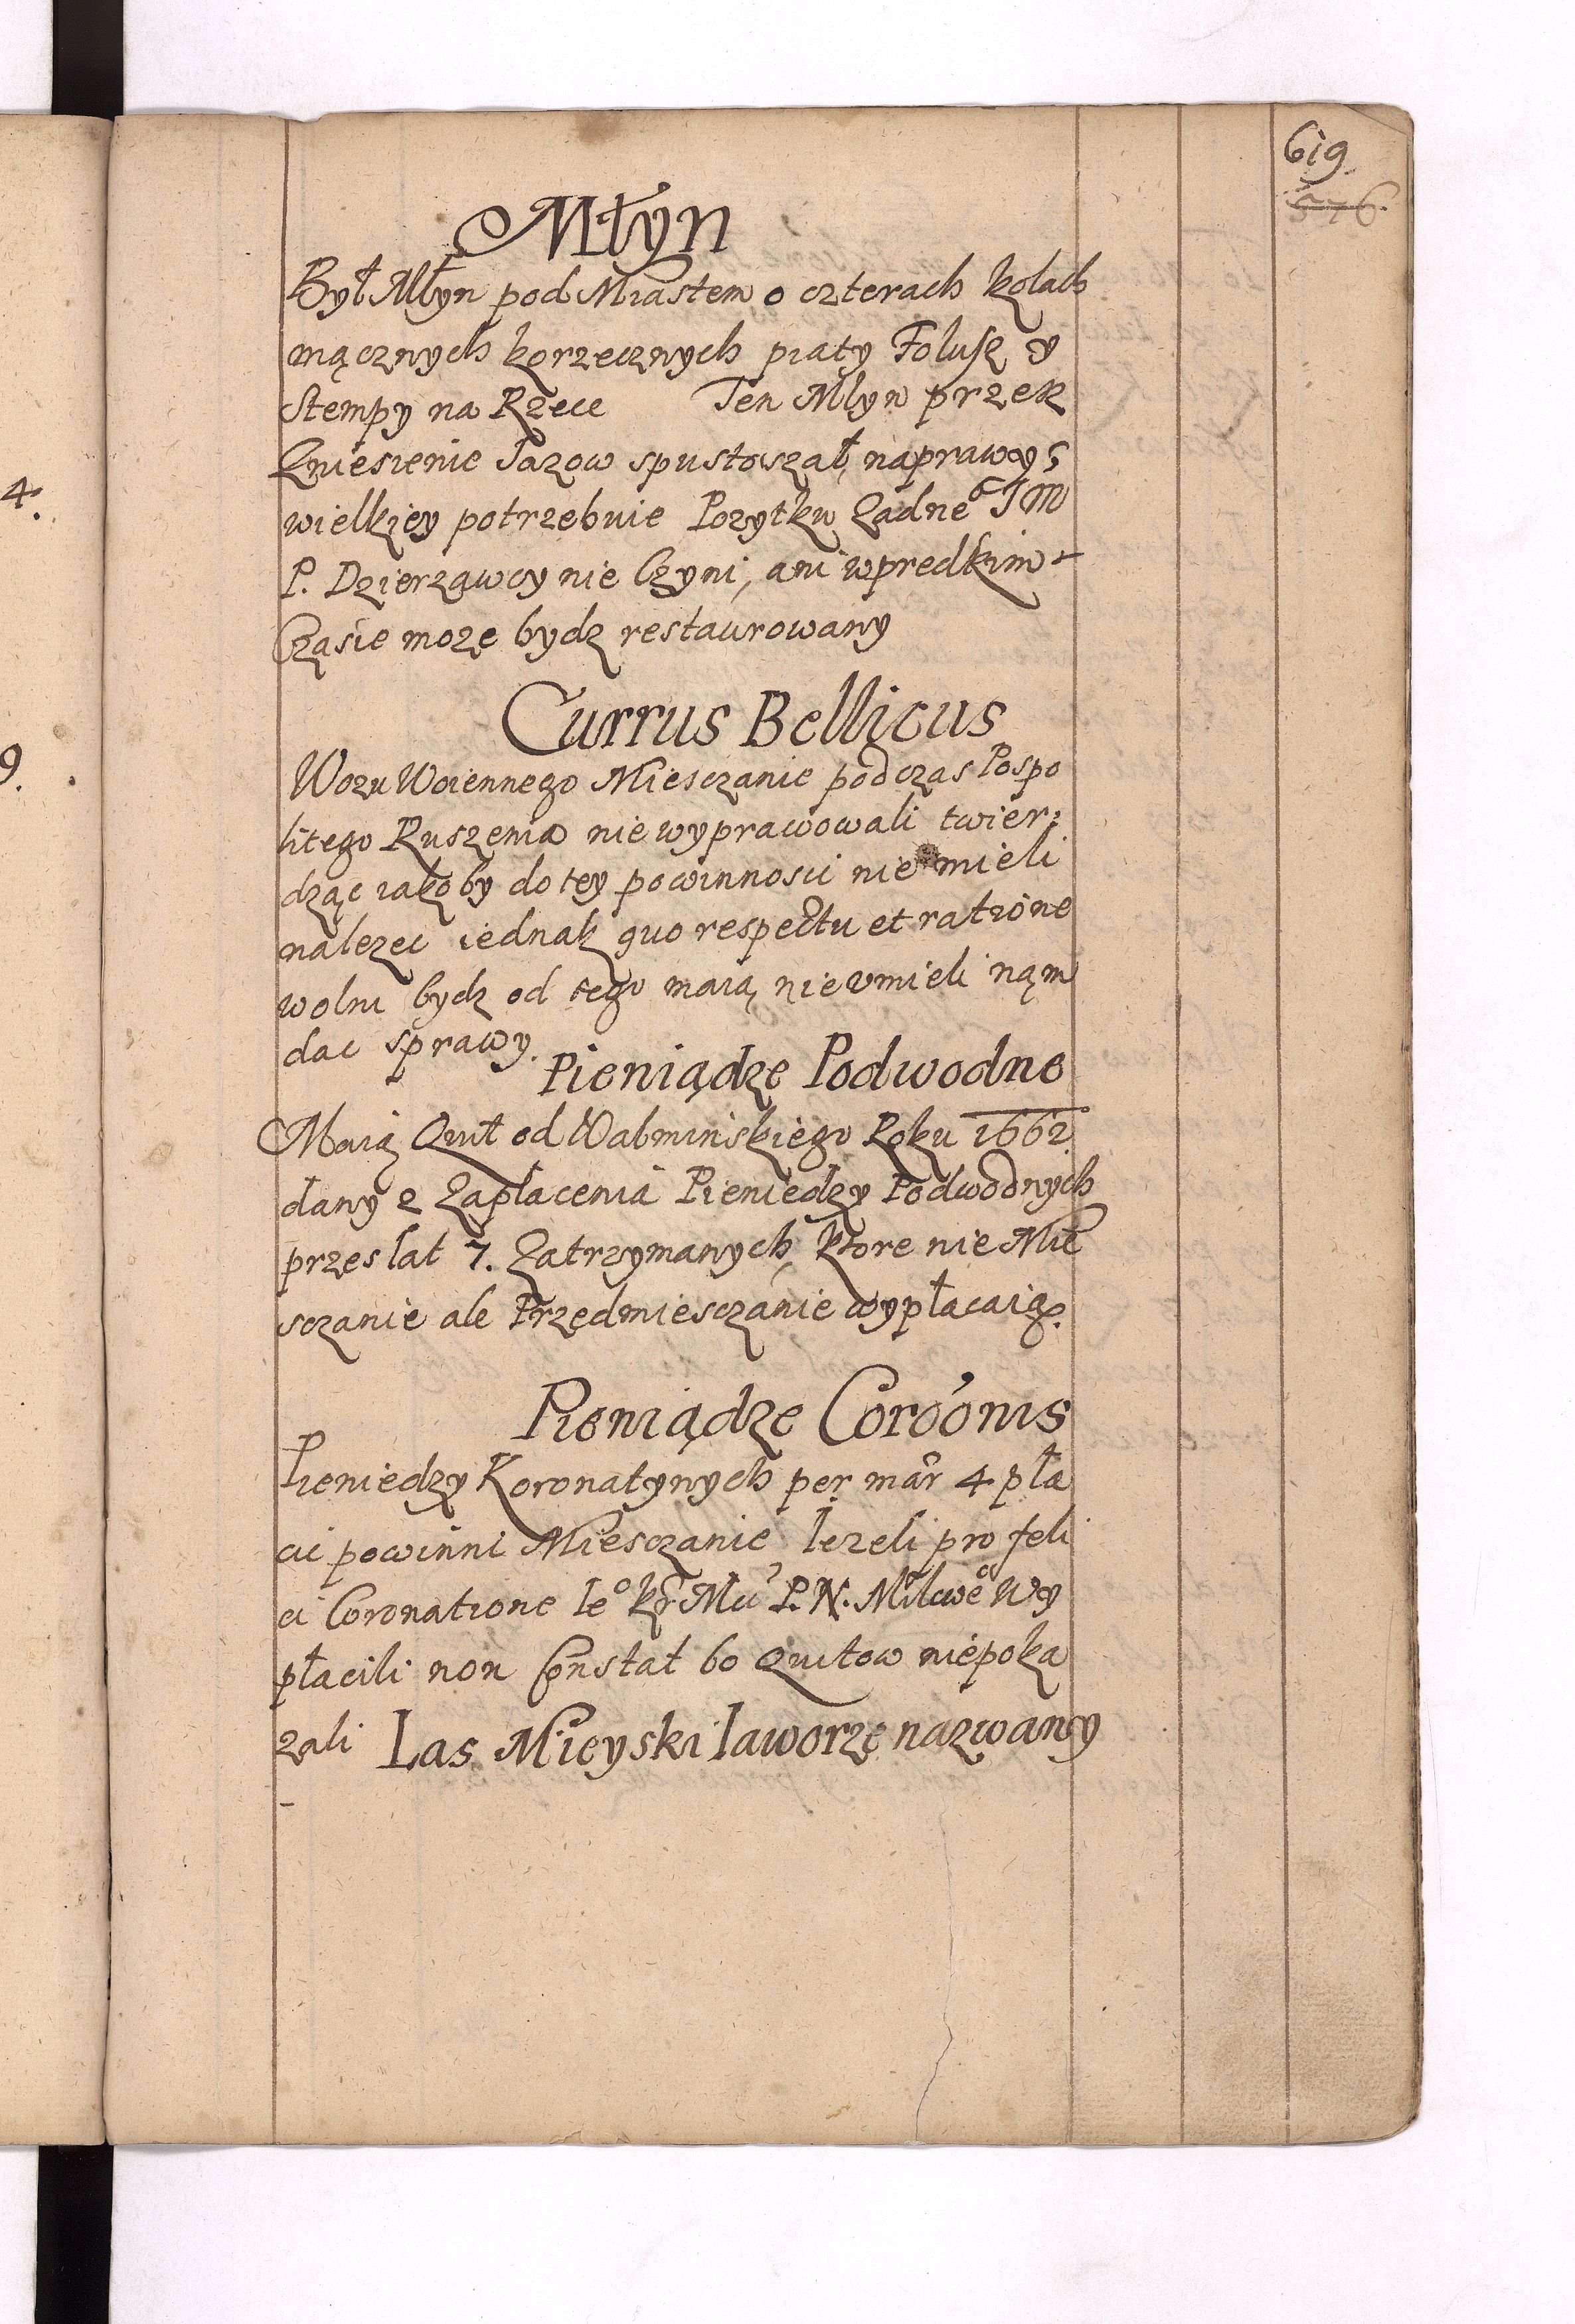 619
576
Młyn
Był Młyn pod Miastem o czterach kołach
mącznych korzecznych piaty Folusz y
Stempy na Rzece Ten Mlyn przez
Zniesienie Jazow spustoszał, naprawy
wielkiey potrzebuie Pozytku Zadneº JM
P. Dzierzawcy nie Czyni, ani wpredkim
Czasie może bydz restaurowany
Currus Bellicus
Wozu Woiennego Miesczanie podczas Pospo
litego Ruszenia nie wyprawowali twier:
dząc iakoby do tey powinnosci nie mieli
nalezec iednak quo respectu et ratione
wolni bydz od tego maią nie vmieli nąm
dac sprawy.
Pieniądze Podwodne
Maią Quit od Wabminskiego Roku 1662
dany z Zapłacenia Pieniedzy Podwodnych
przes lat 7. Zatrzymanych, ktore nie Mie
sczanie ale Przedmiesczanie wypłacaią.
Pieniądze Coroónis
Pieniedzy Koronatynych per mar 4 pła
cic powinni Miesczanie Iezeli pro feli
ci Coronatione Ieº Kr Mci P. N. Milweº Wy
płacili non Constat bo Quitow niepoka
zali Las Mieyski Iaworze nazwany
4.
9.